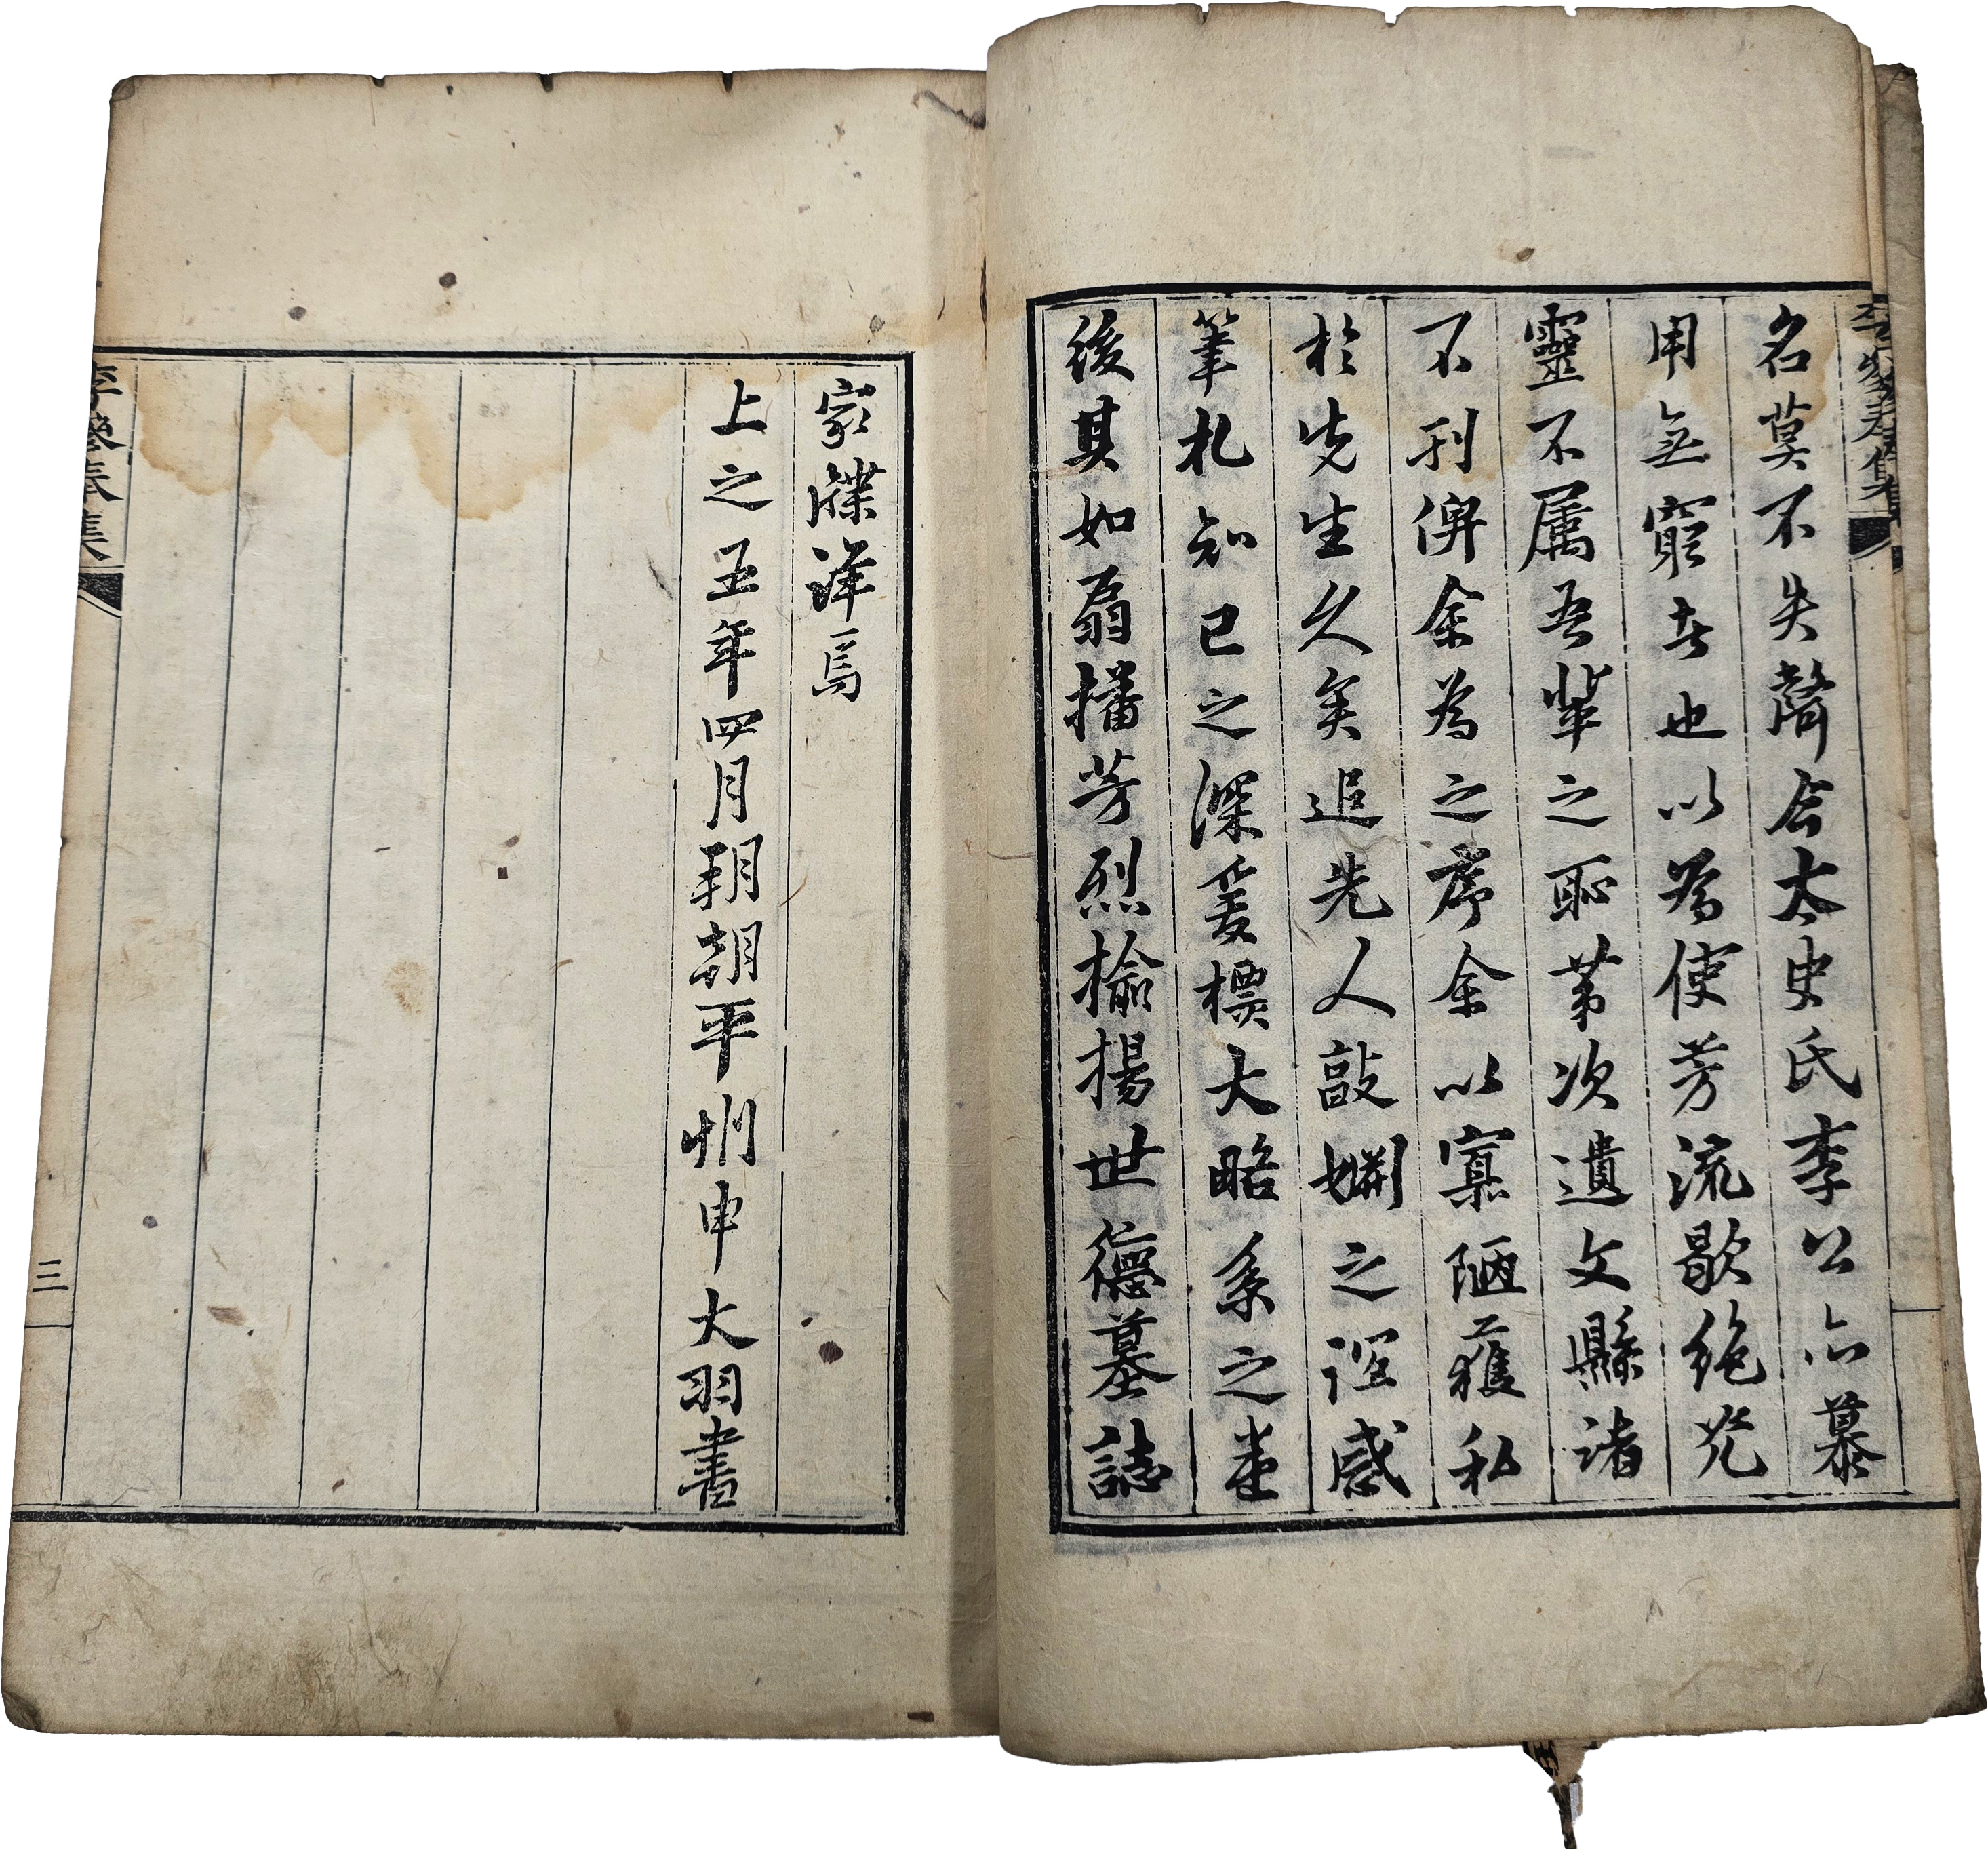 名莫不失聲会太史氏李公六慕
用無窮者也以為使芳流歇絶光
靈不属吾輩之恥茅次遺文縣諸
不刊俾余為之序余以寡陋獲私
於先生久矣追先人敲斮之詚感
筆札知已之深爰標大略系之左
後其如扇播芳烈揄揚世德墓誌
家牒洋焉
上之五年四月朔胡平州申大羽書
李 奉集
三